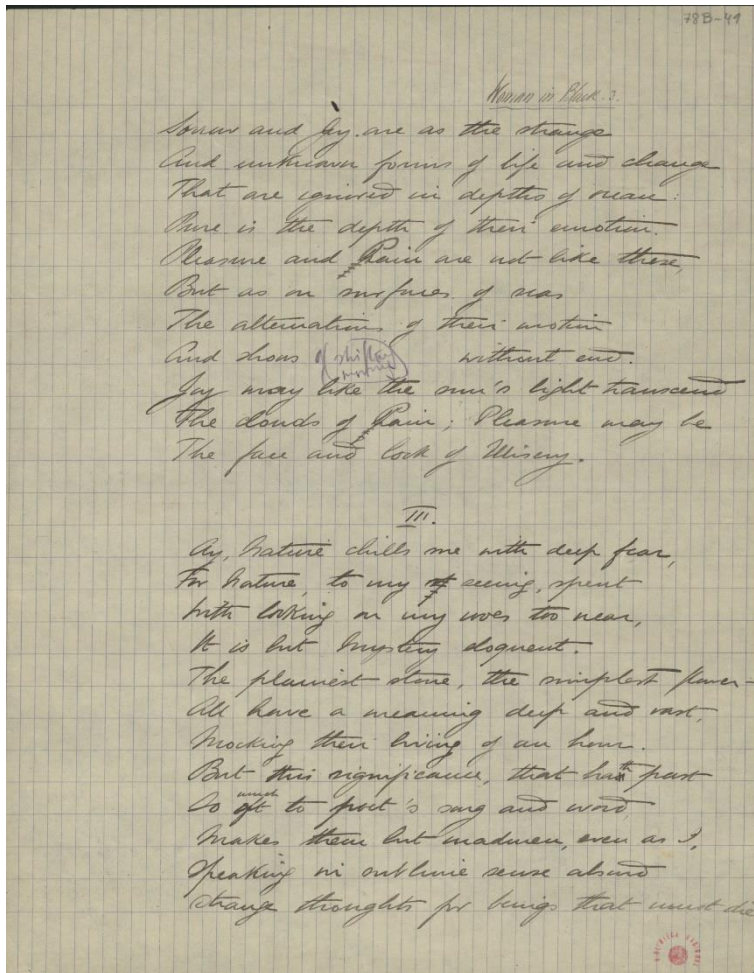 78B-41
Woman in Black. 3.
Sorrow and Joy are as the strange
And unknown forms of life and change
That are ignored in depths of ocean:
Pure is the depth of their emotion.
Pleasure and Pain are not like these,
But as on surfaces of seas
The alternations of their motion
And shows of shifting without end.
Joy may like the sun's light transcend
The clouds of Pain; Pleasure may be
The face and look of Misery.
III.
Ay, Nature chills me with deep fear,
For Nature, to my seeing, spent
With looking on my woes too near,
It is but Mystery eloquent.
The plainest stone, the simplest flower —
All have a meaning deep and vast,
Mocking their living of an hour.
But this significance, that hath past
So oft much to poet's song and word,
Makes them but madmen, even as I,
Speaking in sublime sense absurd
Strange thoughts for beings that must die